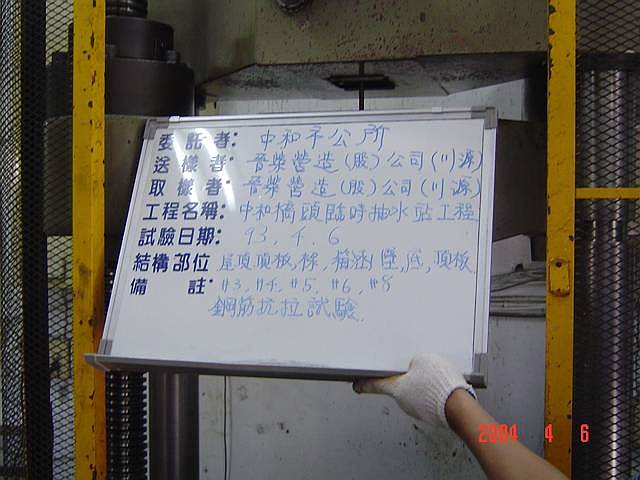 委託者: 中和市公所
送樣者: 晉榮營造(股)公司(川源)
取樣者: 晉榮營造(股)公司(川源)
工程名稱: 中和橋頭臨時抽水站工程
試驗日期: 93.4.6
結構部位 屋頂頂板,樑,牆,底,頂板
備註: #3,#4,#5,#6,#8
鋼筋抗拉試驗
2004 4 6